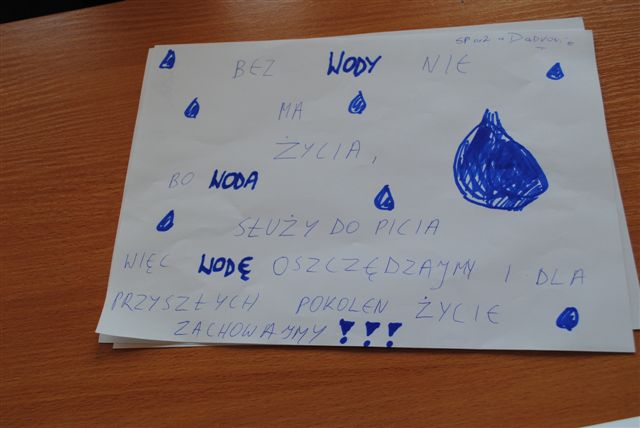 SP nr 2 w Dąbrowie
BEZ WODY NIE
MA
ŻYCIA,
BO WODA
SŁUŻY DO PICIA
WIĘC WODĘ OSZCZĘDZAJMY I DLA
PRZYSZŁYCH POKOLEŃ ŻYCIE
ZACHOWAJMY !!!